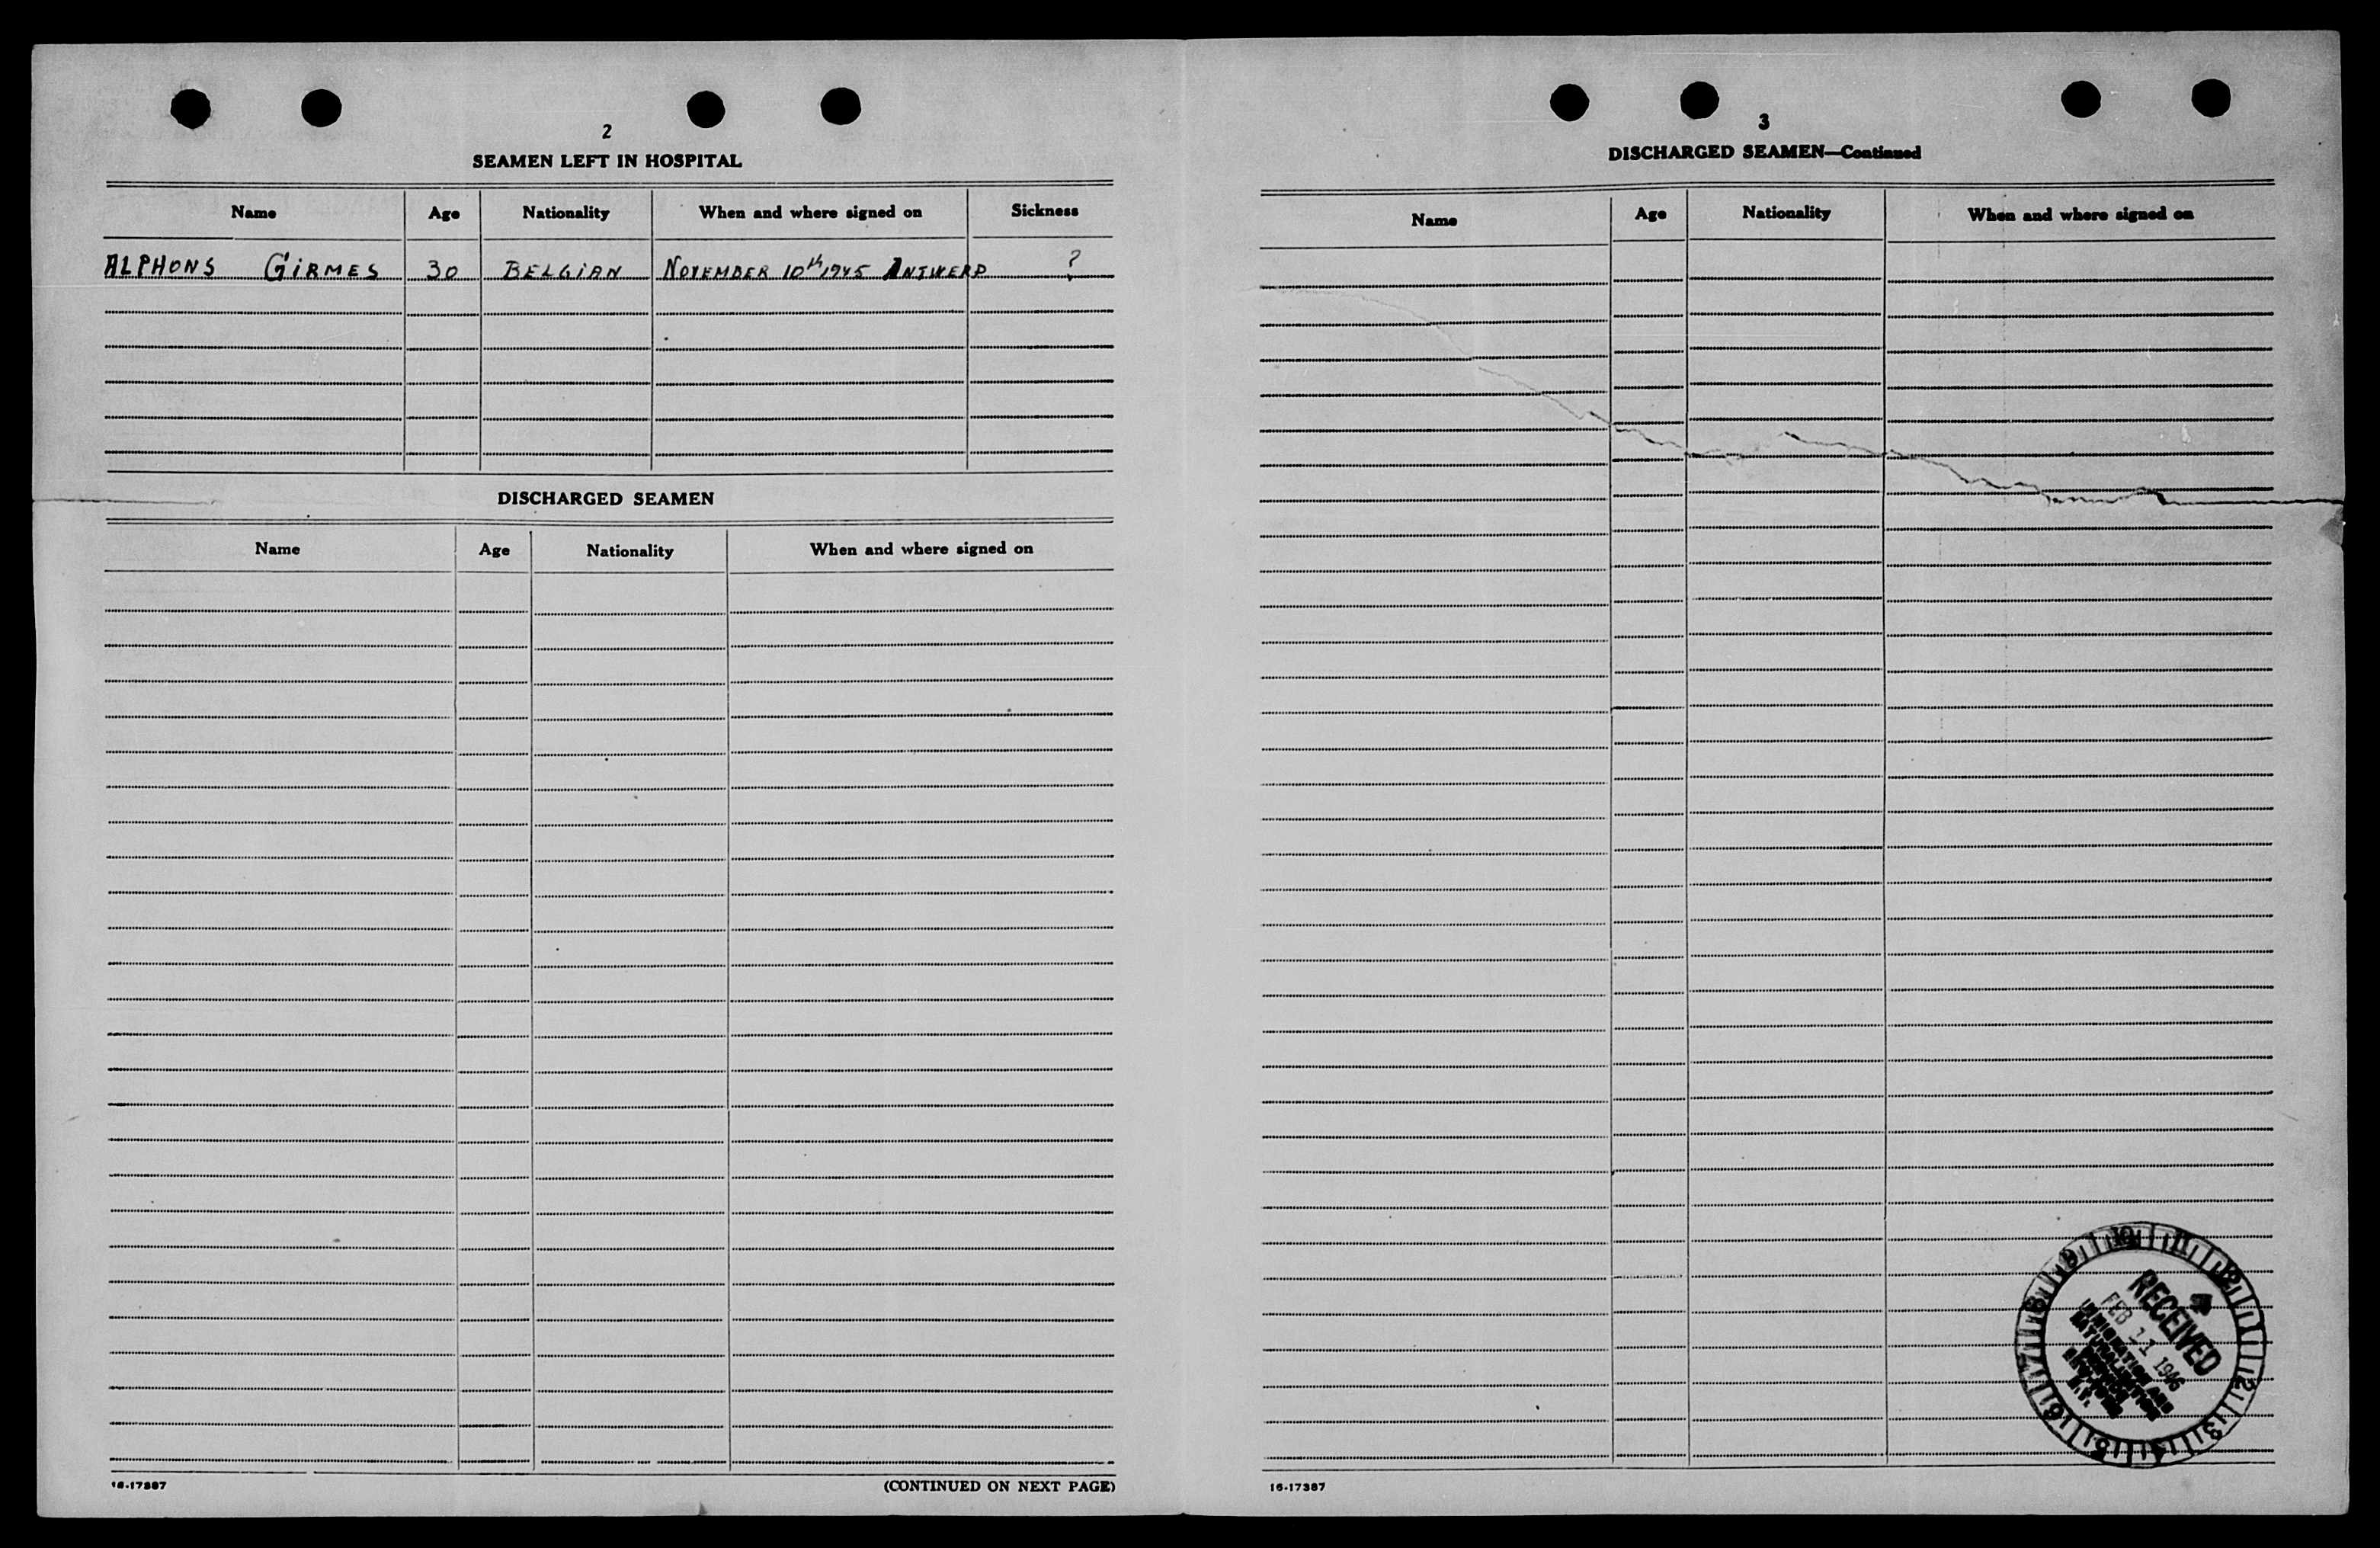 2
SEAMEN LEFT IN HOSPITAL
Name Age Nationality When and where signed on Sickness
ALPHONS GIRMES 30 BELGIAN NOVEMBER 10th 1945 ANTWERP ?
DISCHARGED SEAMEN
Name Age Nationality When and where signed on
16-17387 (CONTINUED ON NEXT PAGE)
3
DISCHARGED SEAMEN—Continued
Name Age Nationality When and where signed on
RECEIVED
FEB 11 1946
IMMIGRATION AND
NATURALIZATION
SERVICE
N.Y.
10 11 12 1 2 3 4 5 6 7 8 9
16-17387